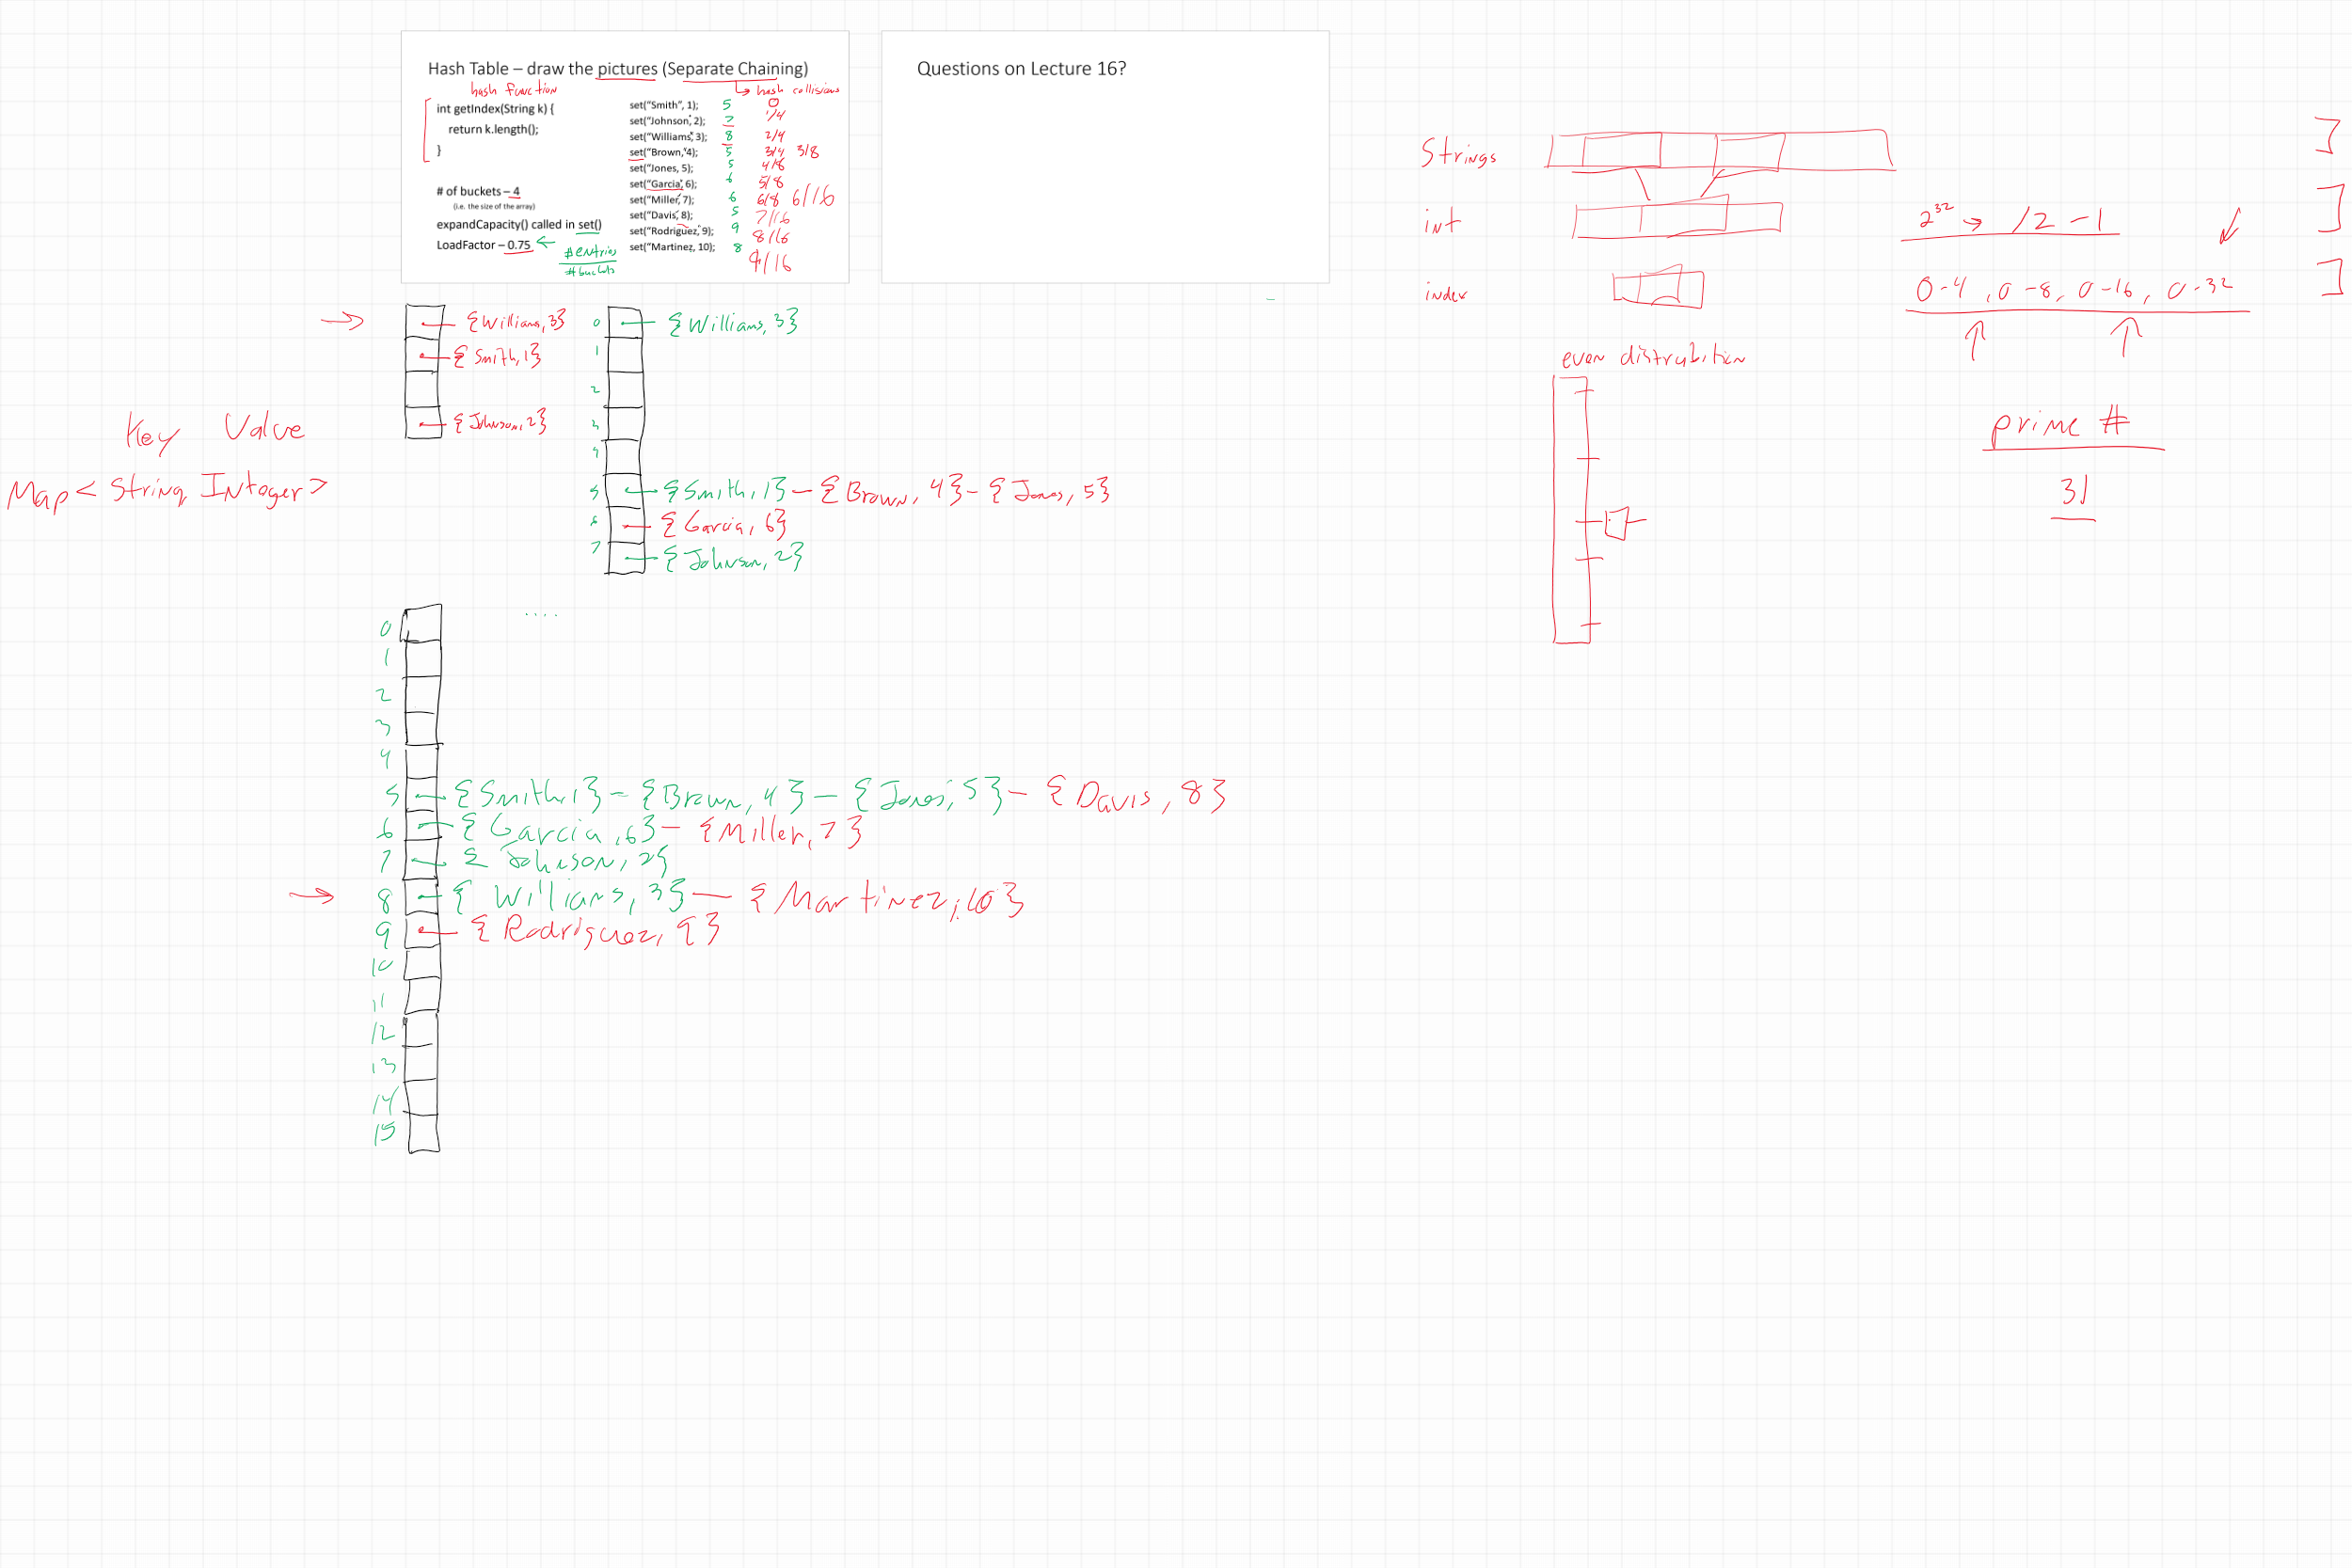 Hash Table – draw the pictures (Separate Chaining)
hash function
hash collisions
int getIndex(String k) {
return k.length();
}
# of buckets – 4
(i.e. the size of the array)
expandCapacity() called in set()
LoadFactor – 0.75
# entries
# buckets
set("Smith", 1); 5 0
set("Johnson", 2); 7 1/4
set("Williams", 3); 8 2/4
set("Brown,"4); 5 3/4 3/8
set("Jones, 5); 5 4/8
set("Garcia", 6); 6 5/8
set("Miller", 7); 6 6/8 6/16
set("Davis", 8); 5 7/16
set("Rodriguez," 9); 9 8/16
set("Martinez, 10); 8
9/16
Questions on Lecture 16?
{Williams, 3}
{Smith, 1}
{Johnson, 2}
Key Value
Map < String Integer >
0 {Williams, 3}
1
2
3
4
5 {Smith, 1} – {Brown, 4} – {Jones, 5}
6 {Garcia, 6}
7 {Johnson, 2}
....
0
1
2
3
4
5 {Smith, 1} – {Brown, 4} – {Jones, 5} – {Davis, 8}
6 {Garcia, 6} – {Miller, 7}
7 {Johnson, 2}
8 {Williams, 3} – {Martinez, 10}
9 {Rodriguez, 9}
10
11
12
13
14
15
Strings
int 2^32 → /2 – 1
index 0-4, 0-8, 0-16, 0-32
even distrubition
prime #
31